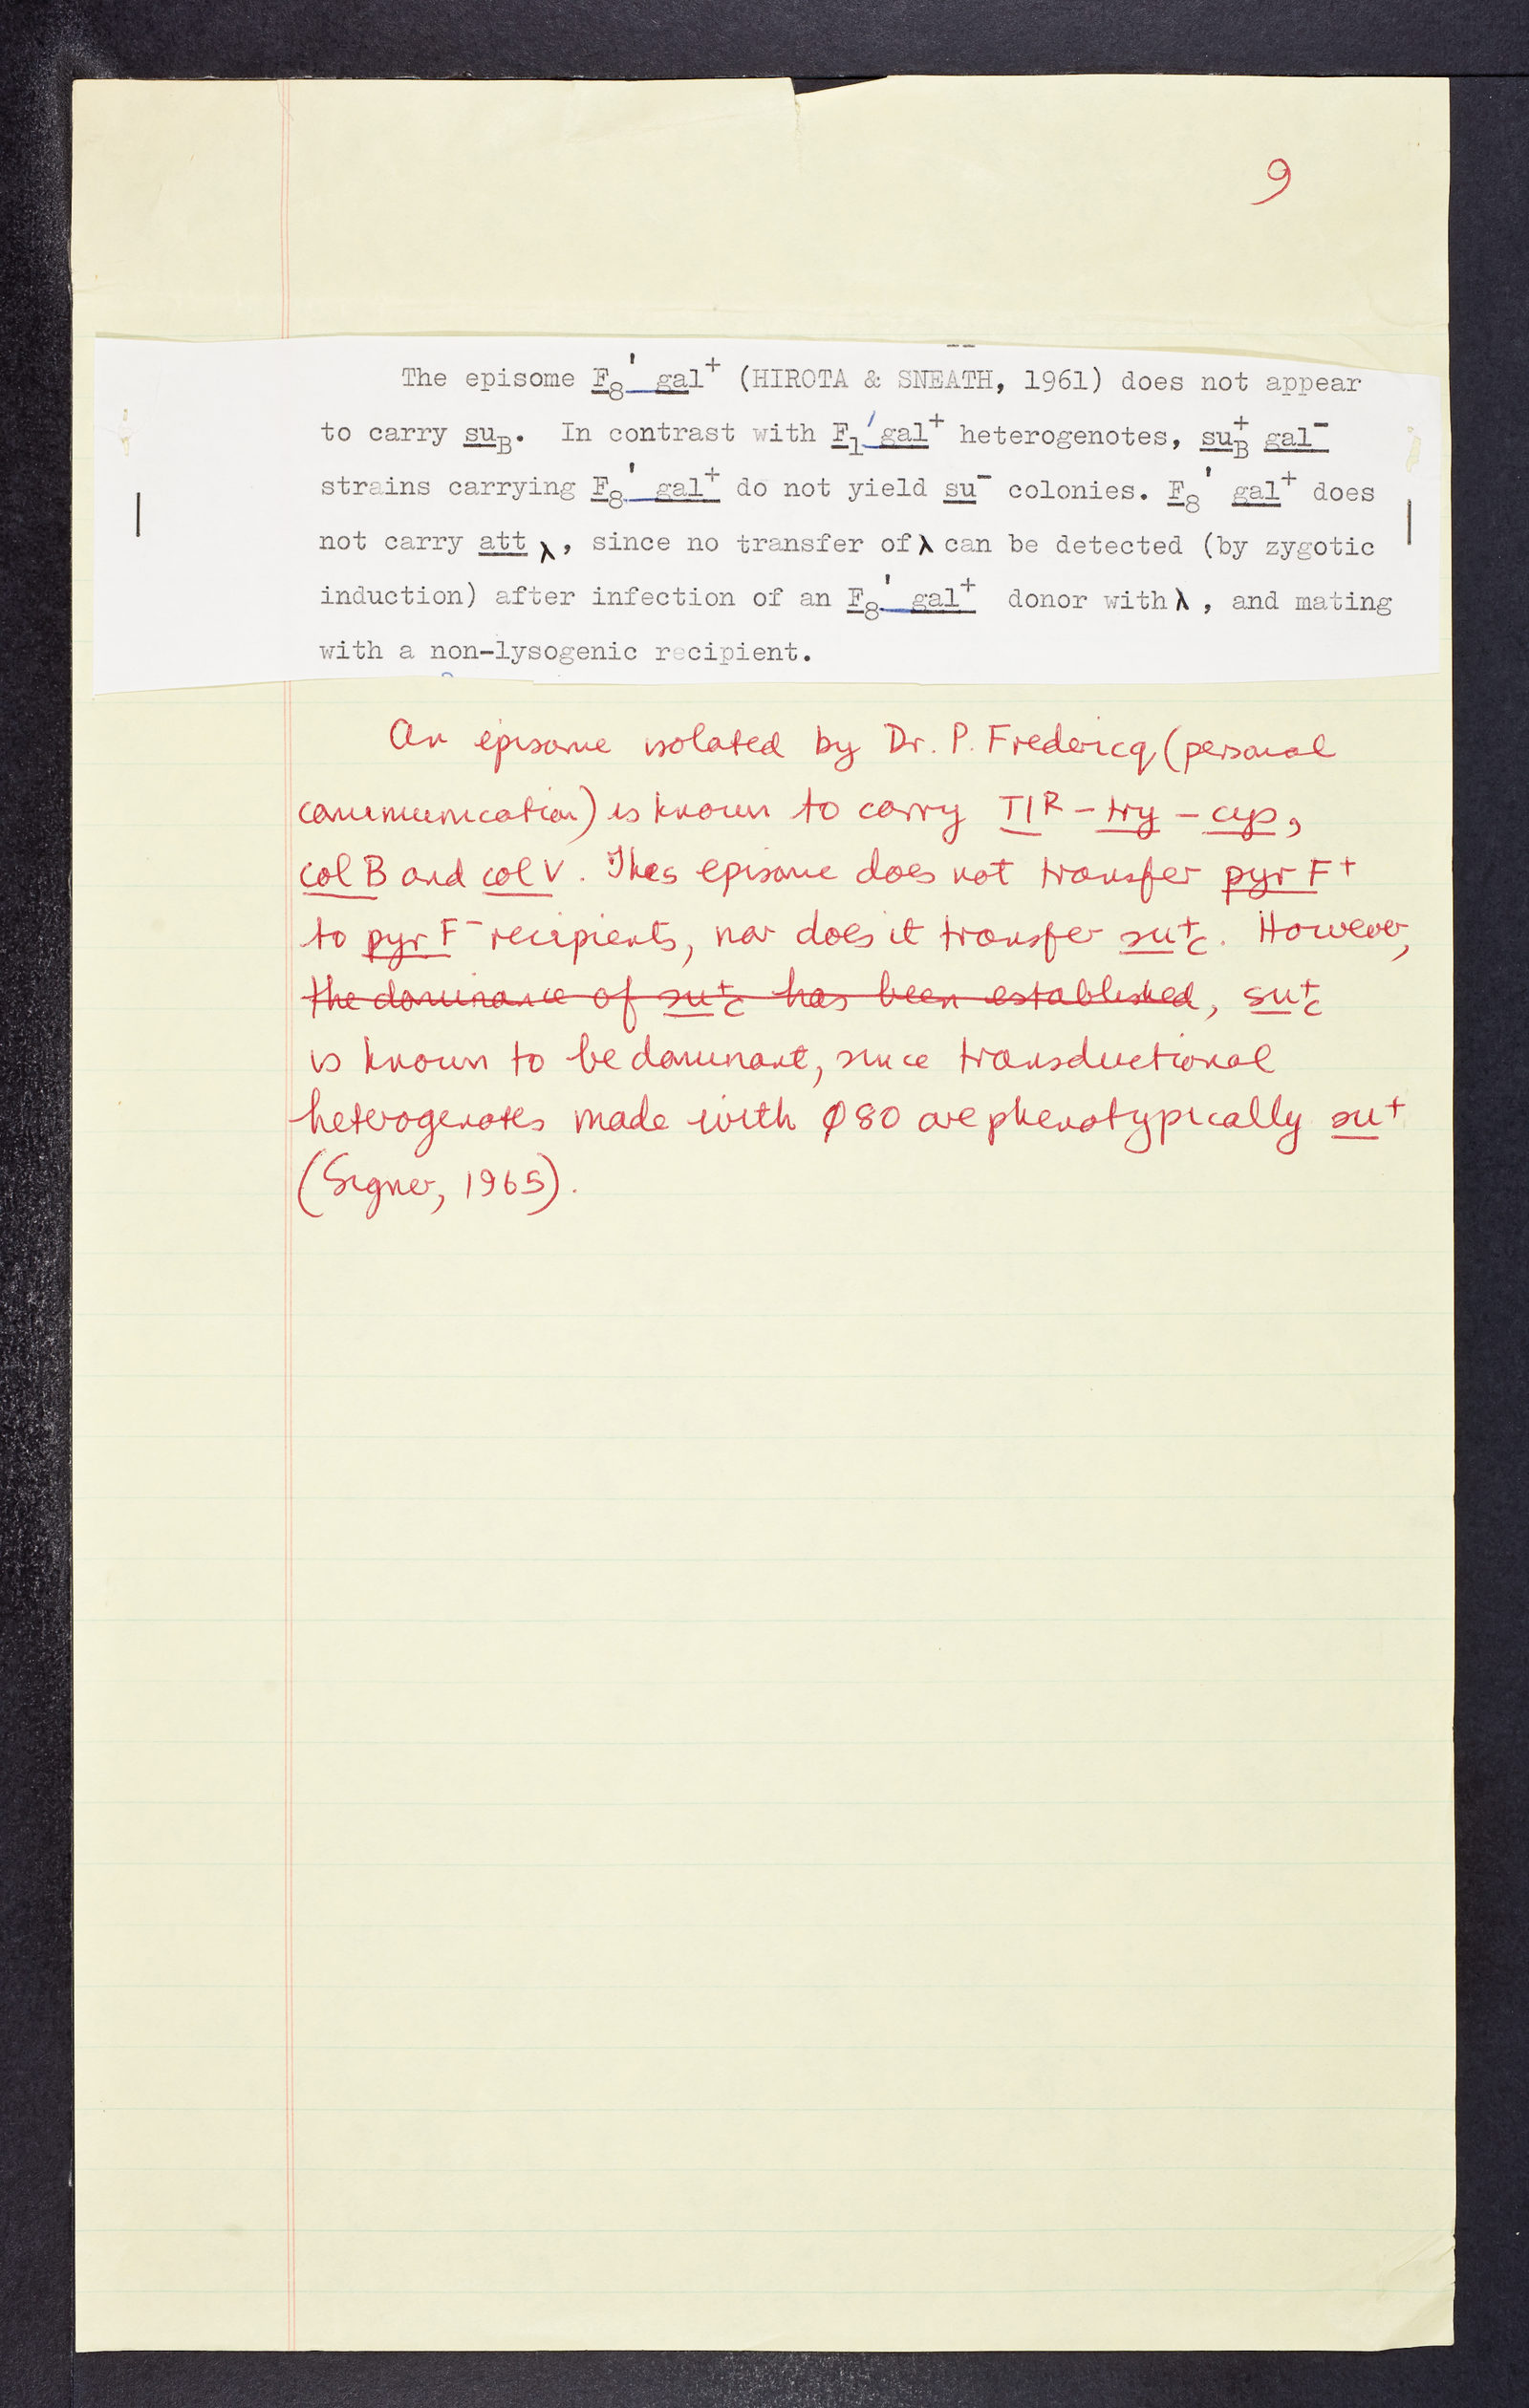 9
The episome F₈' gal⁺ (HIROTA & SNEATH, 1961) does not appear
to carry su_B. In contrast with F₁' gal⁺ heterogenotes, su_B⁺ gal⁻
strains carrying F₈' gal⁺ do not yield su⁻ colonies. F₈' gal⁺ does
not carry att λ, since no transfer of λ can be detected (by zygotic
induction) after infection of an F₈' gal⁺ donor with λ, and mating
with a non-lysogenic recipient.
An episome isolated by Dr. P. Fredericq (personal
communication) is known to carry T1ᴿ - try - cys,
col B and col V. This episome does not transfer pyr F⁺
to pyr F⁻ recipients, nor does it transfer su_C⁺. However,
the dominance of su_C⁺ has been established, su_C⁺
is known to be dominant, since transductional
heterogenotes made with ø80 are phenotypically su⁺
(Signer, 1965).